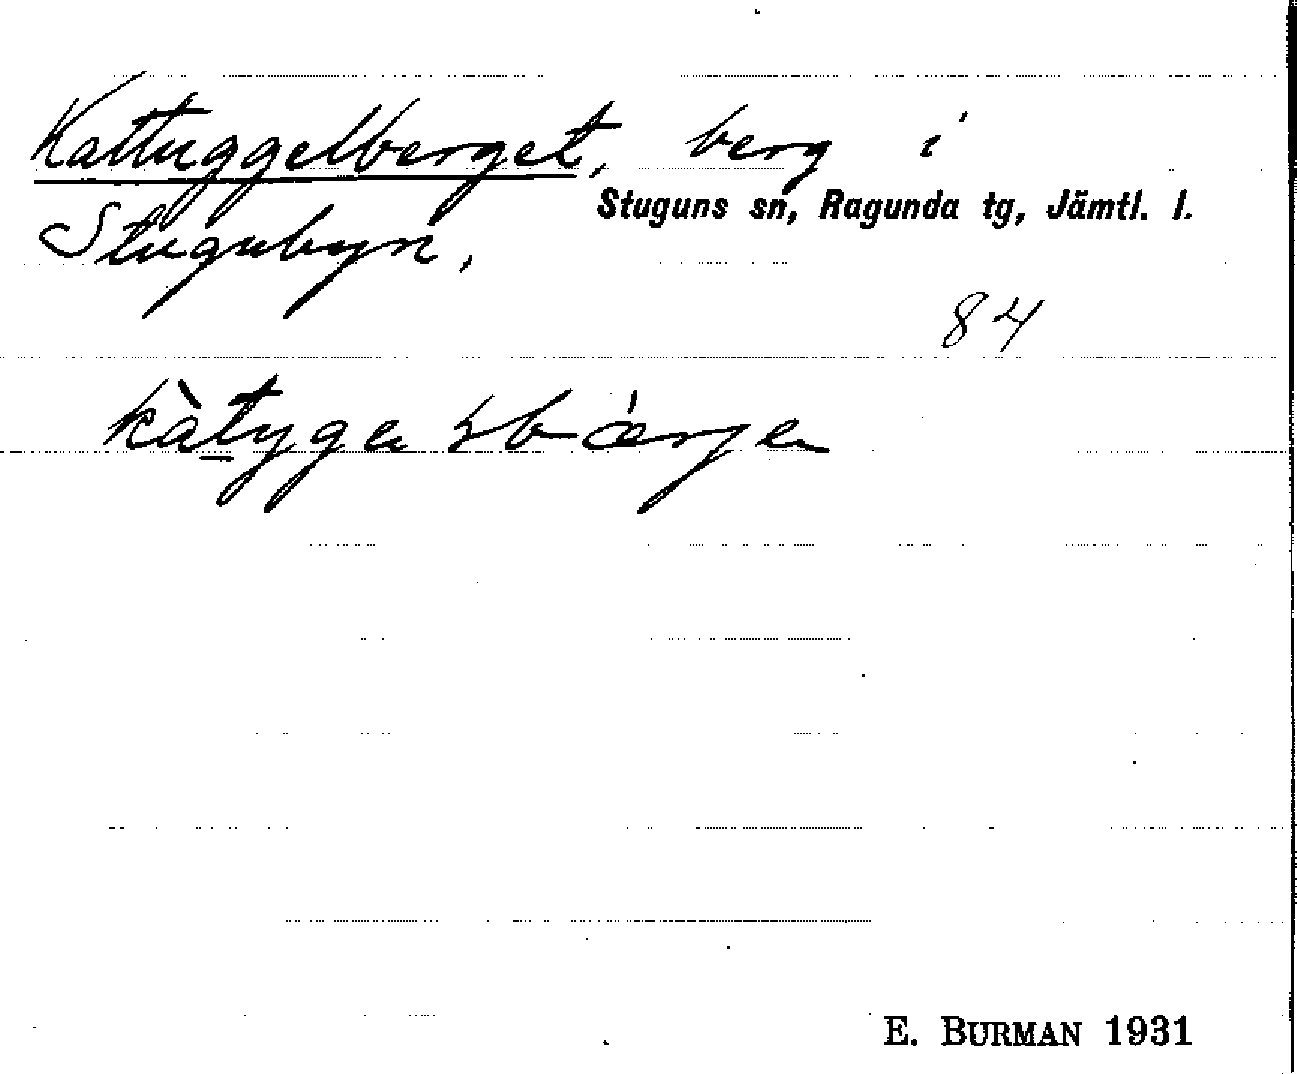 Kattuggelberget, berg i
Stuguns sn, Ragunda tg, Jämtl. l.
Stugubyn,
84
E. BURMAN 1931